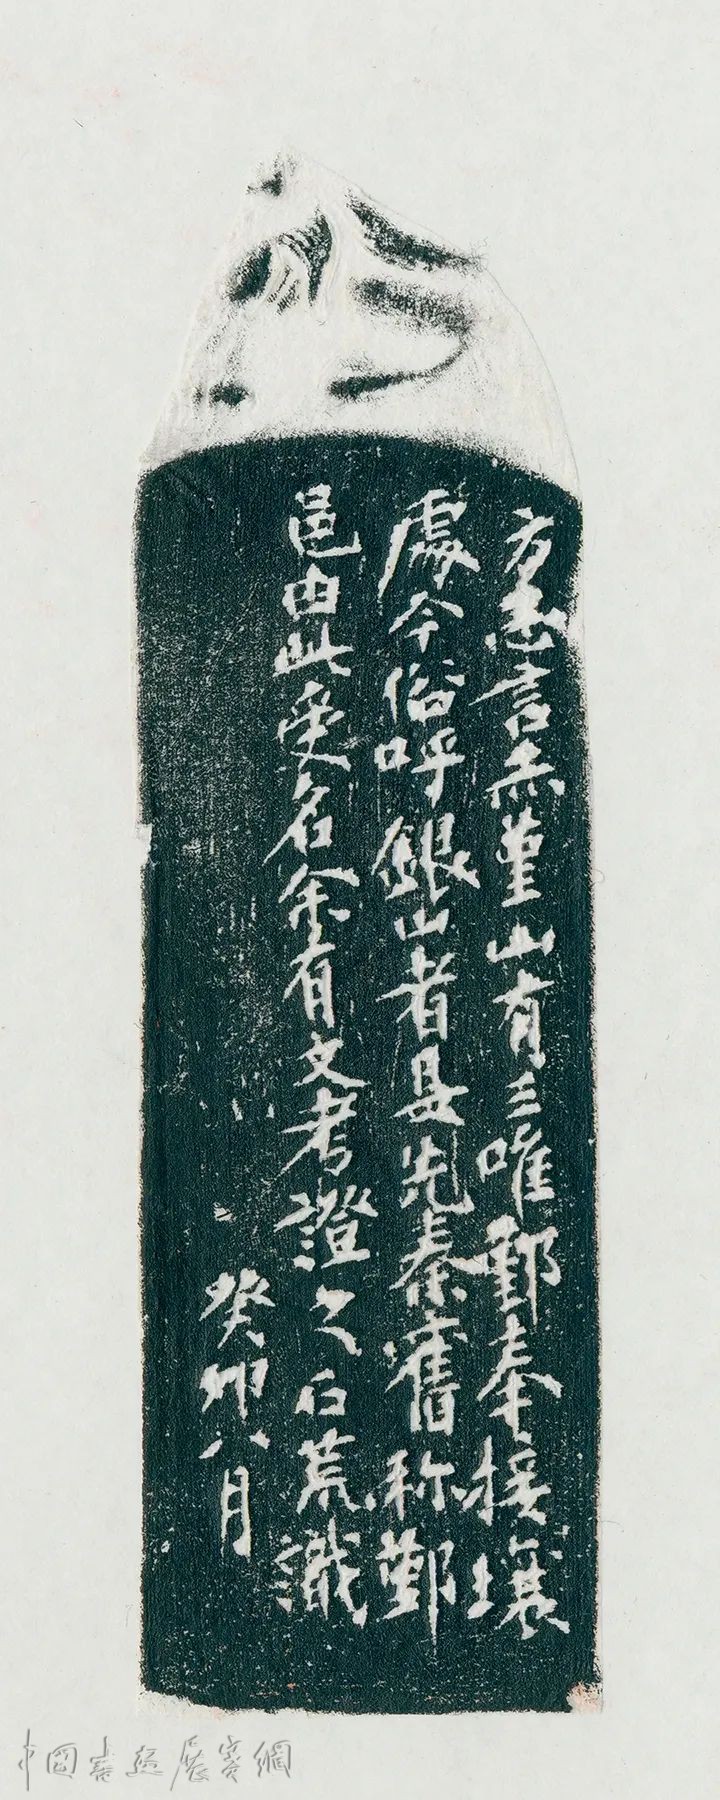 方志言赤堇山有三唯鄞奉接壤
處今俗呼銀山者是先秦舊称鄞
邑由此受名余有文考證之石荒識
癸卯八月
中國書畫展賽網